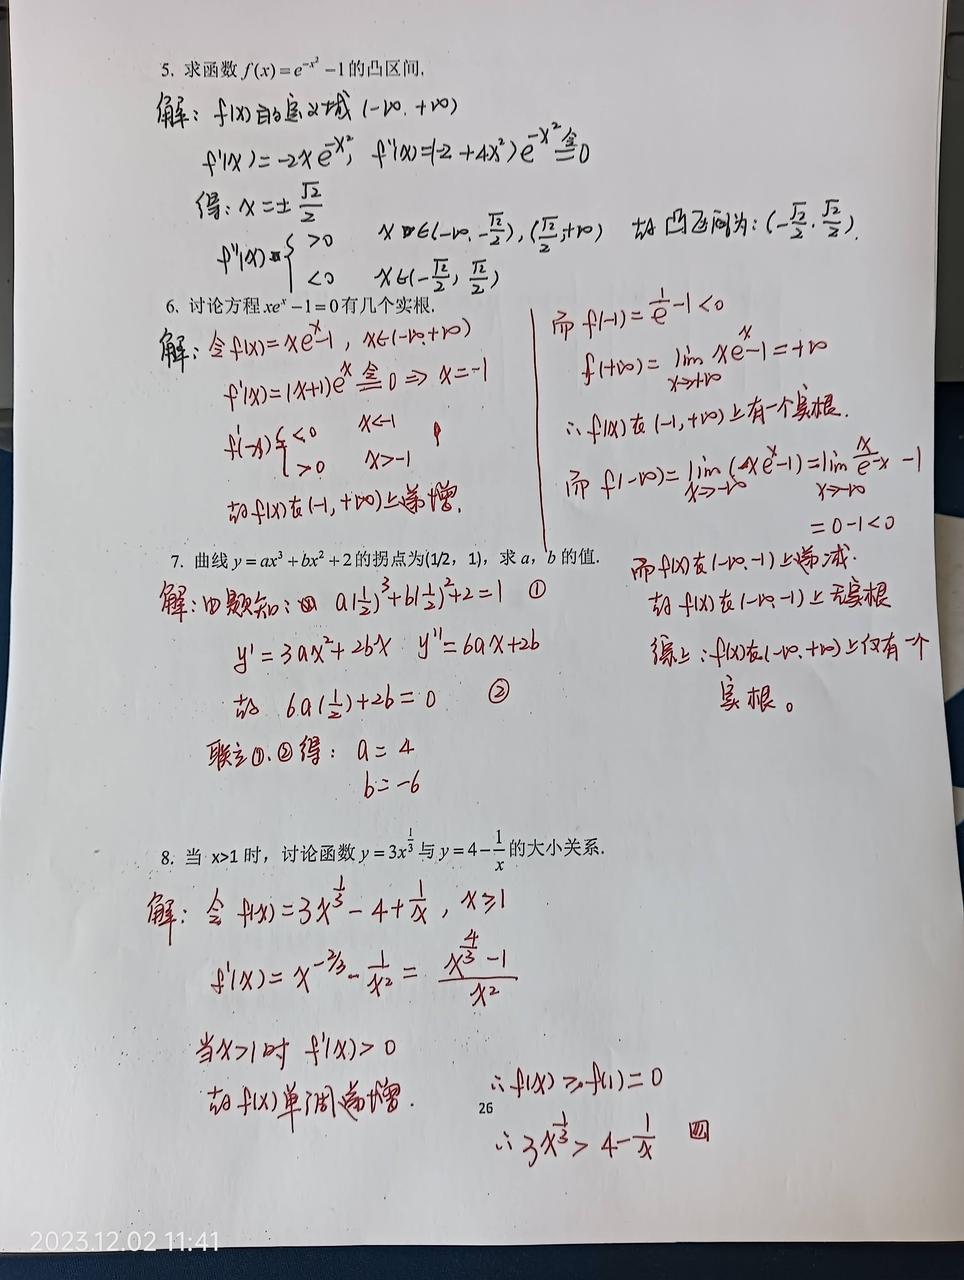 5. 求函数 f(x)=e^{-x²}-1的凸区间.
解: f(x)的定义域 (-∞,+∞)
f'(x)=-2xe^{-x²}, f''(x)=(-2+4x²)e^{-x²} 令= 0
得: x=±√2/2
f''(x) { >0 x∈(-∞,-√2/2),(√2/2,+∞) 故凸区间为:(-√2/2,√2/2).
<0 x∈(-√2/2,√2/2)
6. 讨论方程 xe^x-1=0有几个实根.
解: 令f(x)=xe^x-1, x∈(-∞,+∞)
f'(x)=(x+1)e^x 令= 0 ⇒ x=-1
f'(x) { <0 x<-1
>0 x>-1
故f(x)在(-1,+∞)上递增.
而f(-1)=-1/e-1<0
f(+∞)=lim_{x→+∞} xe^x-1=+∞
∴f(x)在(-1,+∞)上有一个实根.
而f(-∞)=lim_{x→-∞}(xe^x-1)=lim_{x→-∞} x/e^{-x} -1
=0-1<0
而f(x)在(-∞,-1)上递减.
故f(x)在(-∞,-1)上无实根
综上:f(x)在(-∞,+∞)上仅有一个
实根。
7. 曲线 y=ax³+bx²+2的拐点为(1/2，1)，求 a，b 的值.
解:由题知: a(1/2)³+b(1/2)²+2=1 ①
y'=3ax²+2bx y''=6ax+2b
故 6a(1/2)+2b=0 ②
联立①、②得: a=4
b=-6
8. 当 x>1 时，讨论函数 y=3x^{1/3} 与 y=4-1/x 的大小关系.
解: 令 f(x)=3x^{1/3}-4+1/x, x≥1
f'(x)=x^{-2/3}-1/x²=(x^{4/3}-1)/x²
当x>1时 f'(x)>0
故f(x)单调递增.
∴f(x)>f(1)=0
∴3x^{1/3}>4-1/x
26
2023.12.02 11:41